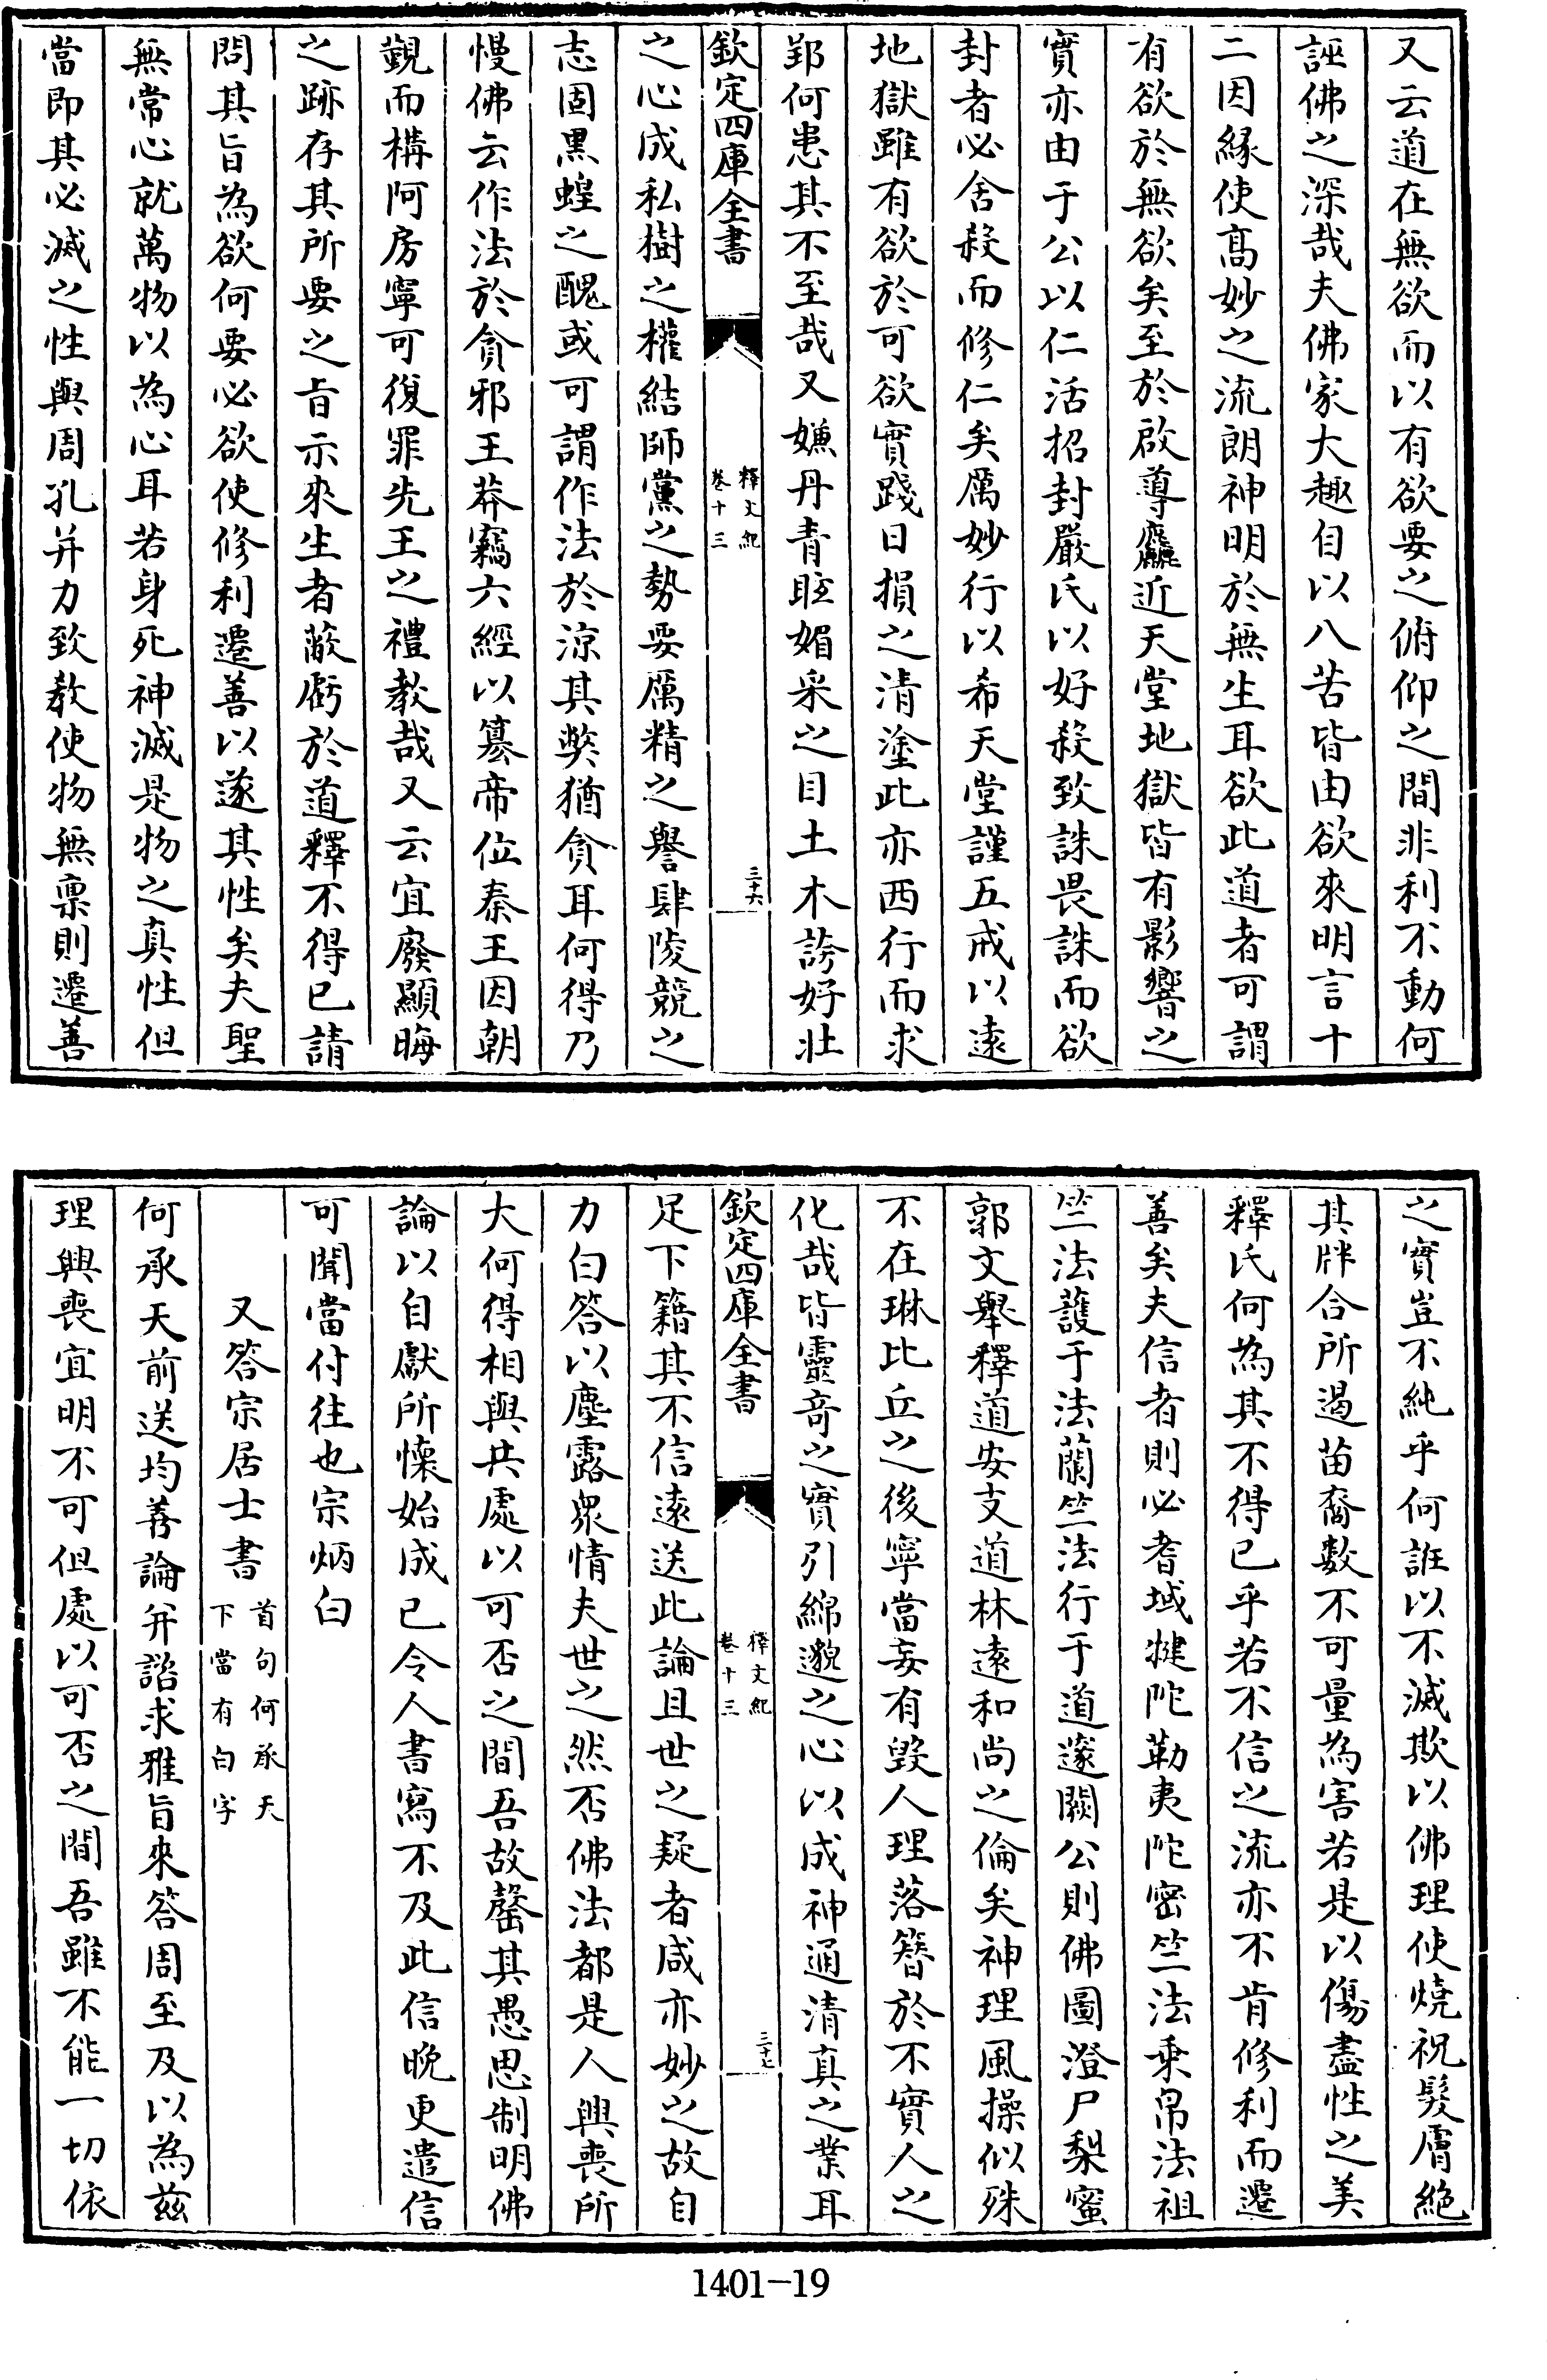 又云道在無欲而以有欲要之俯仰之間非利不動何
誣佛之深哉夫佛家大趣自以八苦皆由欲來明言十
二因縁使髙妙之流朗神明於無生耳欲此道者可謂
有欲於無欲矣至於啟導麤近天堂地獄皆有影響之
實亦由于公以仁活招封嚴氏以好殺致誅畏誅而欲
封者必舍殺而修仁矣厲妙行以希天堂謹五戒以逺
地獄雖有欲於可欲實踐日損之清塗此亦西行而求
郢何患其不至哉又嫌丹青眩媚采之目土木誇好壮
欽定四庫全書
釋文紀
卷十三
三十六
之心成私樹之權結師黨之勢要厲精之譽肆陵競之
志固黒蝗之醜或可謂作法於涼其弊猶貪耳何得乃
慢佛云作法於貪邪王莽竊六經以簒帝位秦王因朝
覲而構阿房寧可復罪先王之禮教哉又云宜廢顯晦
之跡存其所要之旨示來生者蔽虧於道釋不得已請
問其旨為欲何要必欲使修利遷善以遂其性矣夫聖
無常心就萬物以為心耳若身死神滅是物之真性但
當即其必滅之性與周孔并力致教使物無稟則遷善
之實豈不純乎何誑以不滅欺以佛理使燒祝髮膚絶
其牉合所遏苗裔數不可量為害若是以傷盡性之美
釋氏何為其不得已乎若不信之流亦不肯修利而遷
善矣夫信者則必耆域犍陀勒夷陀宻竺法乗帛法祖
竺法護于法蘭竺法行于道邃闕公則佛圖澄尸梨蜜
郭文舉釋道安支道林逺和尚之倫矣神理風操似殊
不在琳比丘之後寧當妄有毀人理落簪於不實人之
化哉皆靈竒之實引綿邈之心以成神通清真之業耳
欽定四庫全書
釋文紀
卷十三
三十七
足下籍其不信逺送此論且世之疑者咸亦妙之故自
力白答以塵露衆情夫世之然否佛法都是人興喪所
大何得相與共處以可否之間吾故罄其愚思制明佛
論以自獻所懐始成已令人書寫不及此信晩更遣信
可聞當付往也宗炳白
又答宗居士書
首句何承天
下當有白字
何承天前送均善論并諮求雅旨來答周至及以為茲
理興喪宜明不可但處以可否之間吾雖不能一切依
1401-19